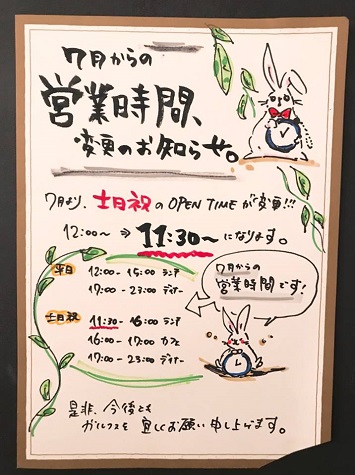 7月からの
営業時間、
変更のお知らせ。
7月より、土日祝のOPEN TIMEが変更!!!
12:00〜 ⇒ 11:30〜になります。
平日 12:00-15:00 ランチ
17:00-23:00 ディナー
土日祝 11:30-16:00 ランチ
16:00-17:00 カフェ
17:00-23:00 ディナー
7月からの
営業時間です!
是非、今後とも
を宜しくお願い申し上げます。